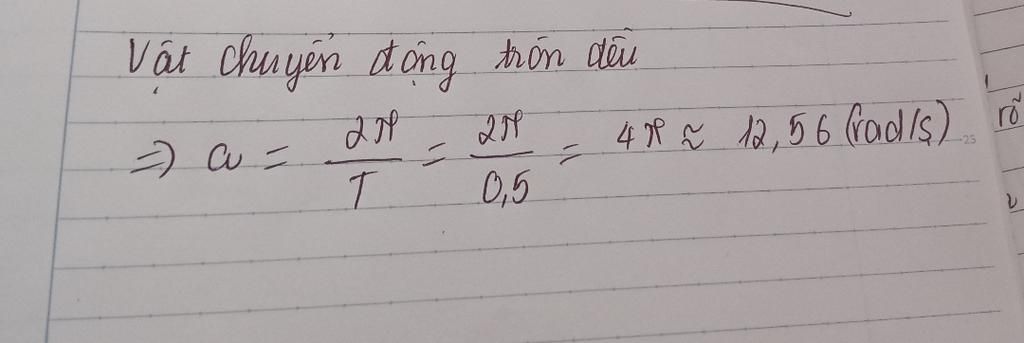 Vật chuyển động tròn đều
=> ω = 2π/T = 2π/0,5 = 4π ≈ 12,56 (rad/s)
25
rõ